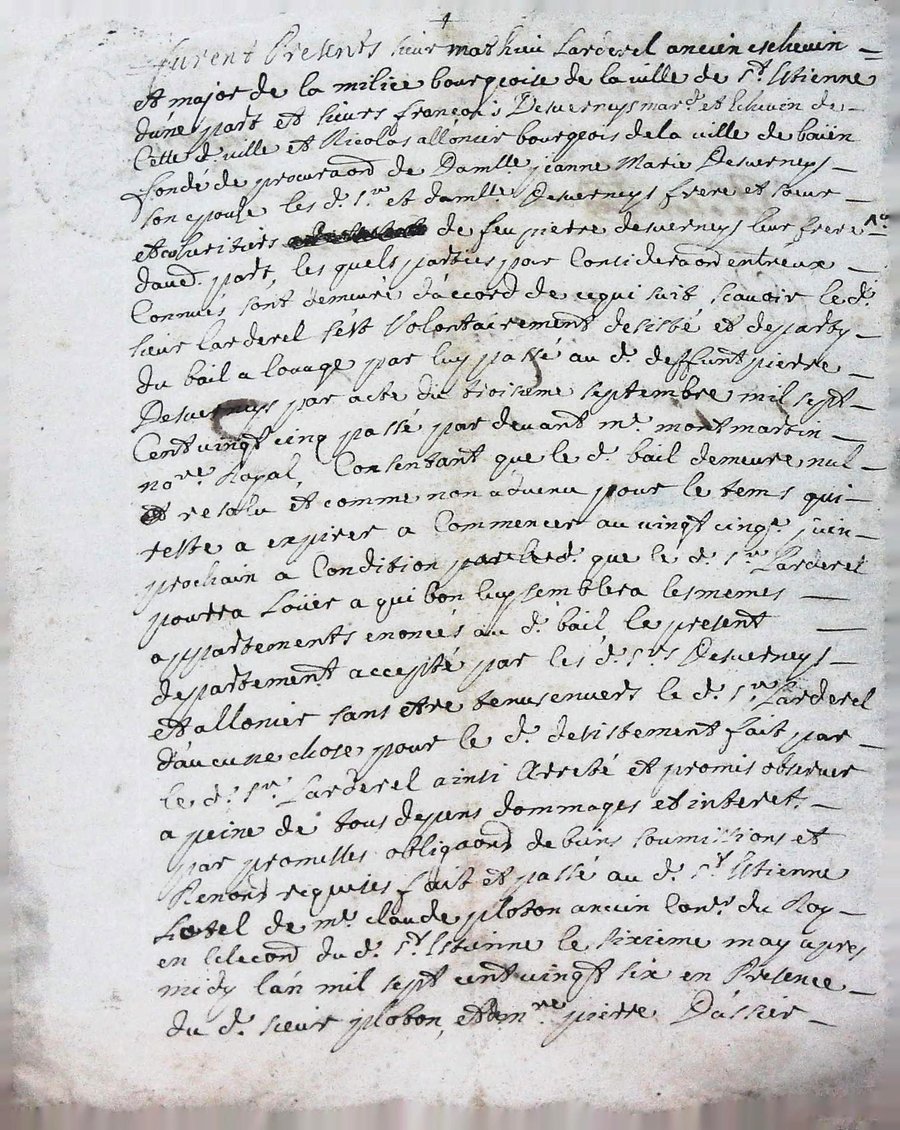 furent Presents sieur mathieu Larderel ancien eschevin
et major de la milice bourgeoise de la ville de St. Etienne
d'une part et sieurs françois Desverneys mard. et Echevin de
Cette d. ville et Nicolas allonier bourgeois de la ville de boën
fondé de procuraon de Damlle. jeanne Marie Desverneys
son epouse les d. sr. et damlle. Desverneys frere et sœur
et coheritiers de feu pierre desverneys leur frere
d'autre part, les quels parties par Consideraon entreux
Connuës sont demeuré d'accord de ce qui suit scavoir le d.
sieur Larderel s'est Volontairement desisté et departy
du bail a louage par luy passé au d. deffunt pierre
Desverneys par acte du troisieme septembre mil sept
Cent vingt cinq passé par devant me. montmartin
nore. Royal, Consentant que le d. bail demeure nul
et resolu et comme non advenu pour le tems qui
reste a expirer a Commencer au vingt cinqe. juin
prochain a Condition que le d. sr. Larderel
pourra Loüer a qui bon luy semblera les memes
appartements enoncés au d. bail le present
departement accepté par les d. srs. Desverneys
et allonier sans etre tenus envers le d. sr. Larderel
d'aucune chose pour le d. desistement fait par
le d. sr. Larderel ainsi Arreté et promis observer
a peine de tous depens dommages et interets
par promesses obligaons de biens soumissions et
Renons requises fait et passé au d. St. Etienne
hotel de me. claude ploton ancien Coner. du Roy
en Lelecon du d. St. Etienne le sixieme may apres
midy l'an mil sept cent vingt six en Presence
du d. sieur ploton, et de me pierre Dassier